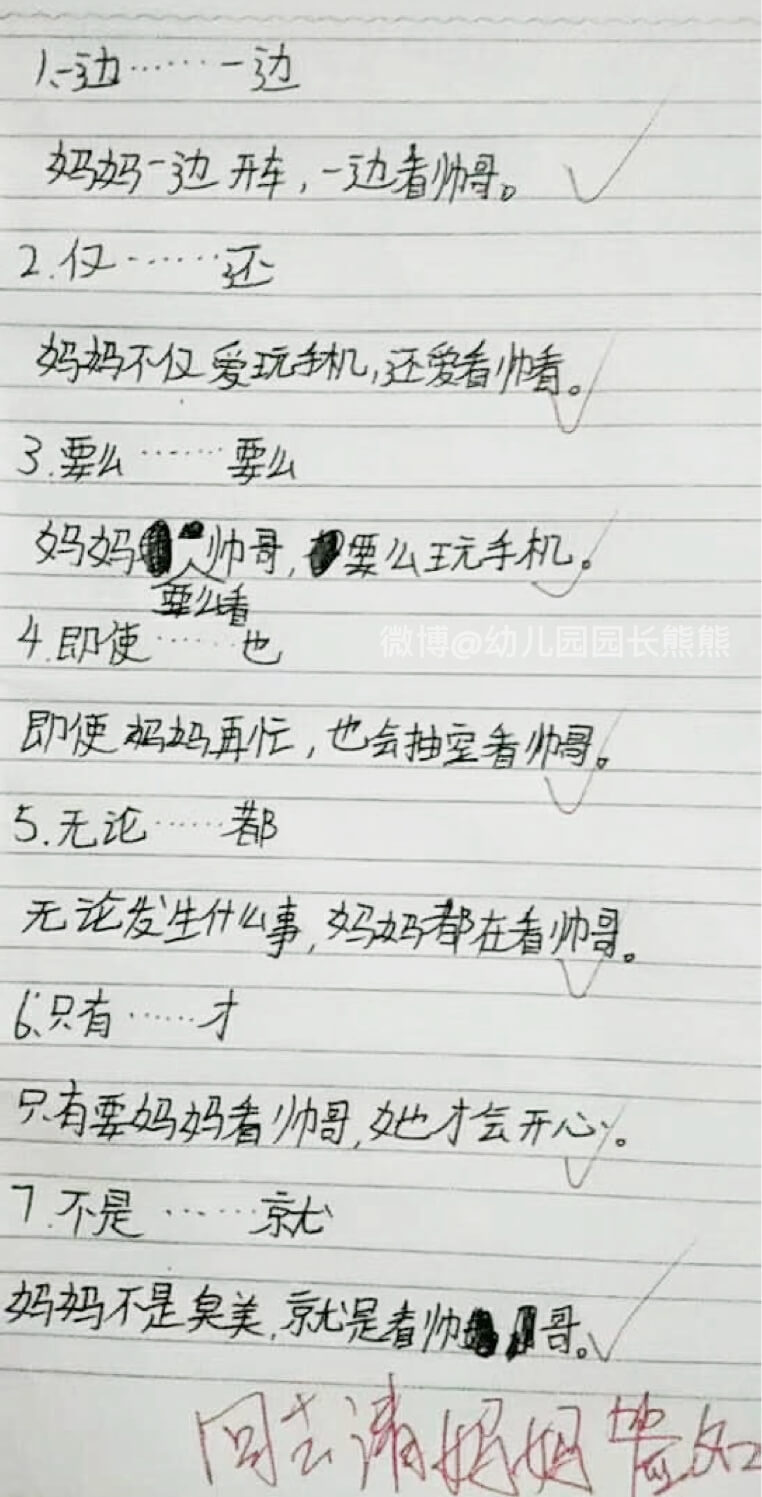 1.一边……一边
妈妈一边开车，一边看帅哥。
2.仅……还
妈妈不仅爱玩手机，还爱看帅看。
3.要么……要么
妈妈帅哥，要么玩手机。
要么看
4.即使……也
微博@幼儿园园长熊熊
即使妈妈再忙，也会抽空看帅哥。
5.无论……都
无论发生什么事，妈妈都在看帅哥。
6.只有……才
只有要妈妈看帅哥，她才会开心。
7.不是……就
妈妈不是臭美，就是看帅哥。
回去请妈妈签如